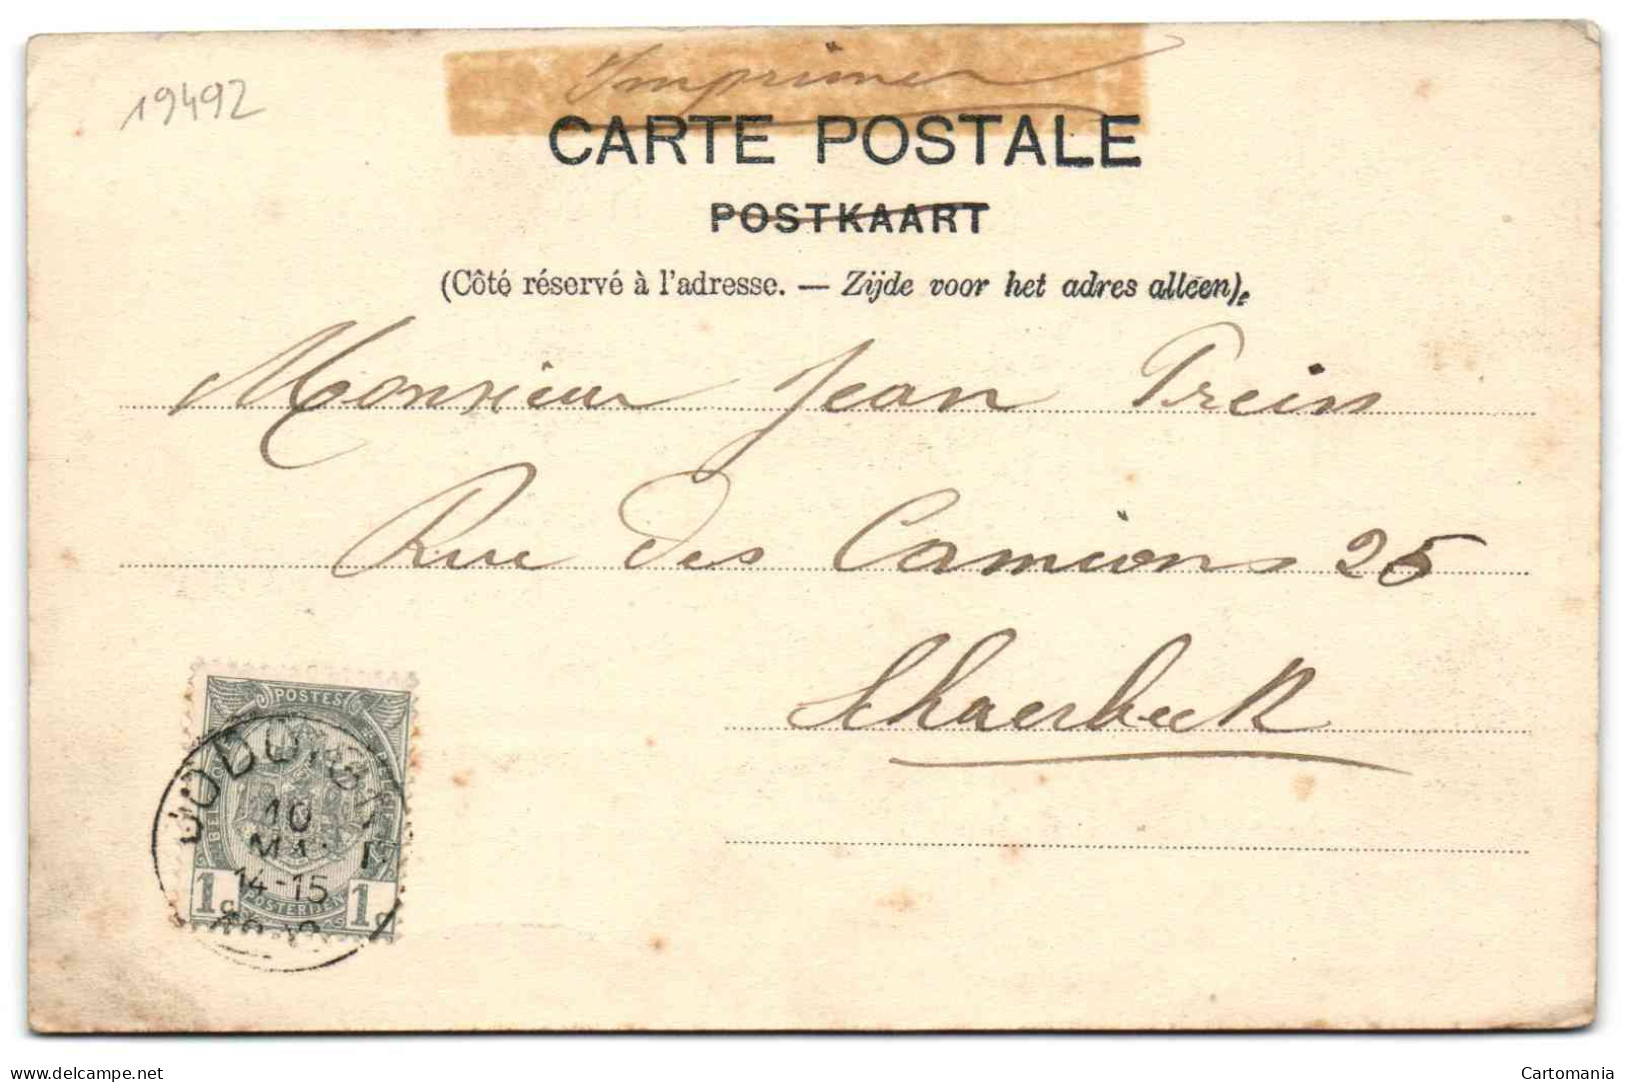 19492
Imprimer
CARTE POSTALE
POSTKAART
(Côté réservé à l'adresse. — Zijde voor het adres alléen).
Monsieur Jean Prein
Rue des Camions 25
Schaerbeck
POSTES
10
14-15
1c 1c
POSTERIJEN
www.delcampe.net
Cartomania